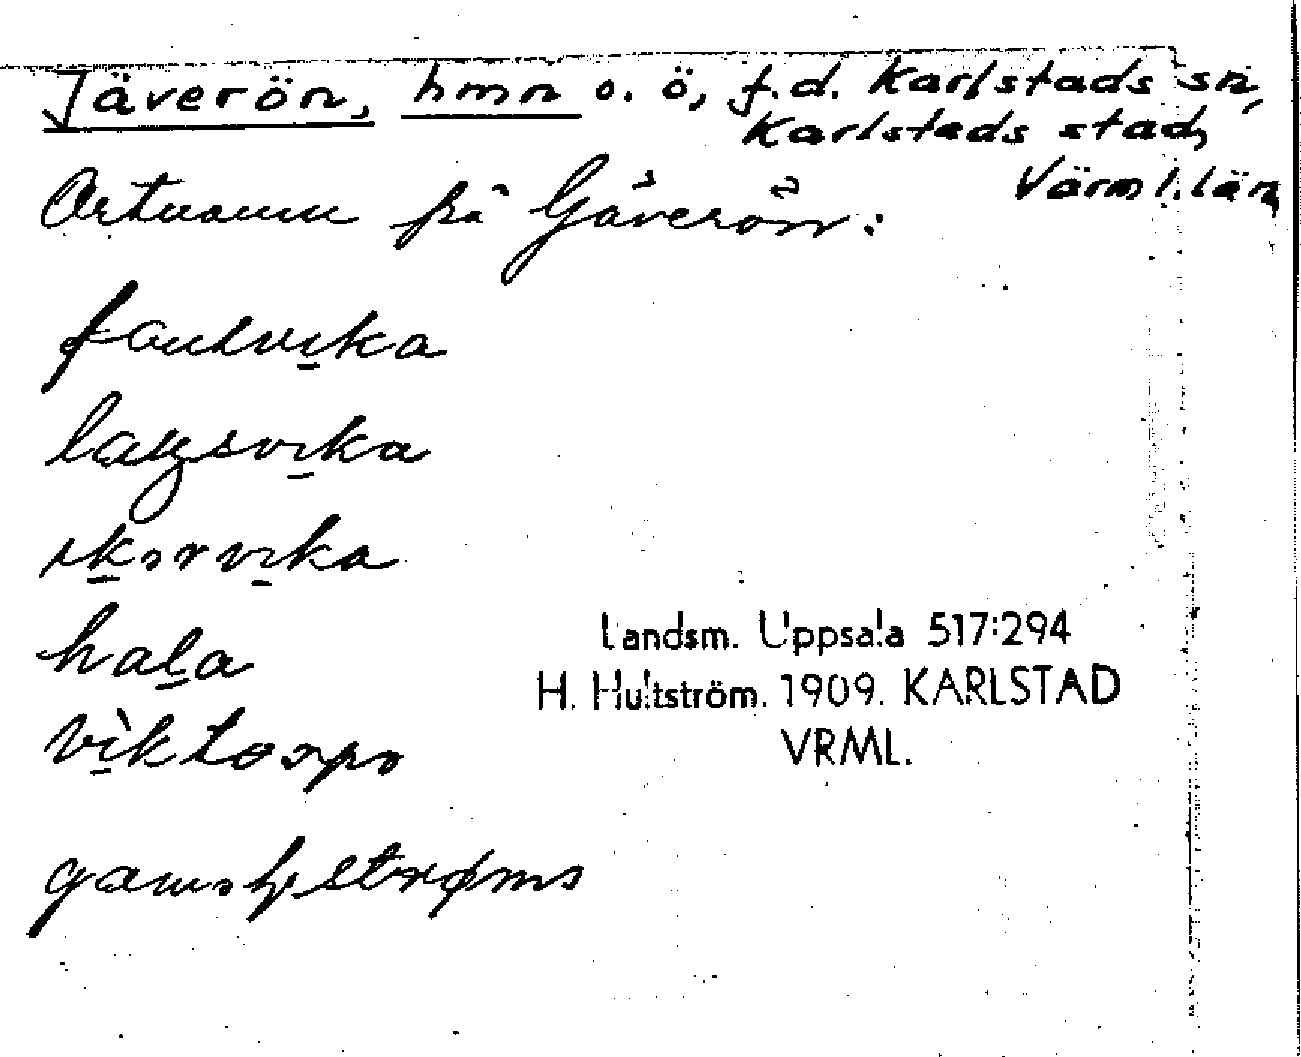 Jäverön, hmn o. ö, f.d. Karlstads sn,
Karlstads stad,
Värml. län
Ortnamn på Gäverön:
fantvika
laŋsvika
skorvika
hala
viktorps
Landsm. Uppsala 517:294
H. Hultström. 1909. KARLSTAD
VRML.